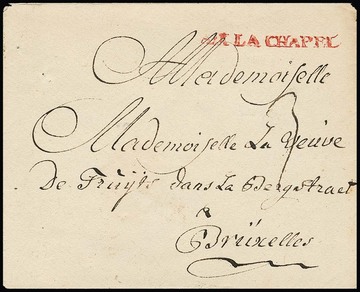 AIX LA CHAPEL
Mademoiselle
Mademoiselle La Veuve
De Fruyts dans La Bergstraet
à
Brüxelles